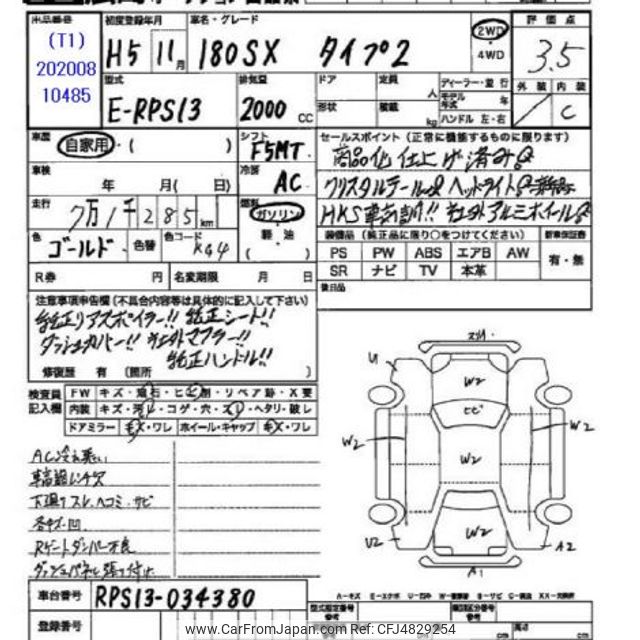 出品番号 初度登録年月 車名・グレード 評価点
(T1) H5 11月 180SX タイプ2 2WD ・4WD 3.5
202008
10485
型式 排気量 ドア 定員 人 ディーラー・並行 外装 内装
E-RPS13 2000 CC 形状 積載 kg モデル年式 年 ハンドル 左・右 C
車歴 自家用・( ) シフト F5MT セールスポイント (正常に機能するものに限ります)
商品化仕上げ済み☆
車検 年 月( 日) 冷房 AC クリスタルテール☆ ヘッドライト☆
走行 7万1千285km 燃料 ガソリン 軽・油 ( ) HKS車高調!! 社外アルミホイール☆
色 ゴールド 色替 色コード K44 装備品 (純正品に限り○をつけてください) 新車保証書
PS PW ABS エアB AW 有・無
SR ナビ TV 本革
R券 円 名変期限 月 日 後日品
注意事項申告欄 (不具合内容等は具体的に記入して下さい)
純正リアスポイラー!! 純正シート!!
ダッシュカバー!! 社外マフラー!!
純正ハンドル!!
修復歴 有 (箇所 )
検査員記入欄 FW キズ・飛石・ヒビ・割・リペア跡・X要
内装 キズ・汚レ・コゲ・穴・スレ・ヘタリ・破レ
ドアミラー キズ・ワレ ホイール・キャップ キズ・ワレ
AC冷え悪い
車高調レンチ欠
下廻りスレ、ヘコミ・サビ
各キズ・凹
Rゲートダンパー不良
ダッシュパネル張り付け
U W2 ヒビ W2 W2 W2 W2 U2 A2 A1
A－キズ E－エクボ U－凹み W－補修跡 S－サビ C－腐食 XX－交換済
車台番号 RPS13-034380
登録番号 型式指定番号 参考 類別区分番号 参考
長さ cm cm 高さ cm
www.CarFromJapan.com Ref:CFJ4829254